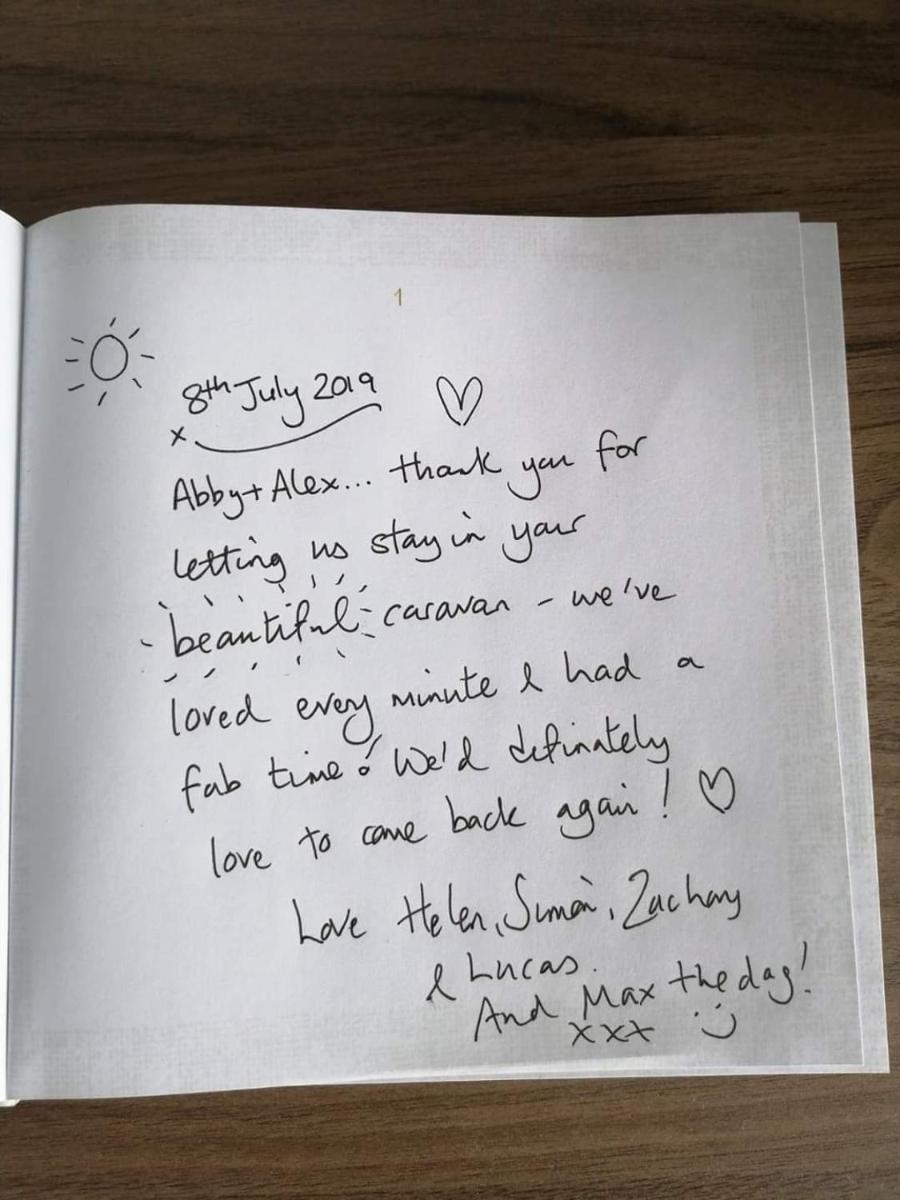 1
8th July 2019
x
Abby + Alex... thank you for
letting us stay in your
beautiful caravan - we've
loved every minute & had a
fab time! We'd definately
love to come back again! ♡
Love Helen, Simon, Zachary
& Lucas.
And Max the dog!
xxx :)